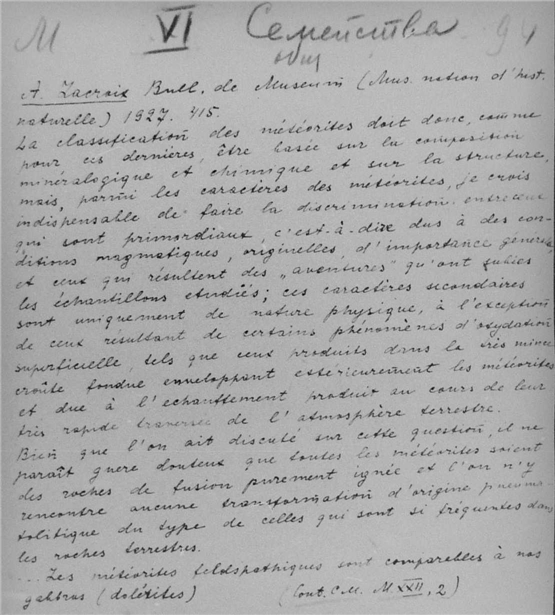 М VI Семейства 94
общ
A. Lacroix Bull. de Museum (Mus. nation d'hist.
naturelle) 1927. 415.
La classification des météorites doit donc, comme
pour ces dernières, être basée sur la composition
minéralogique et chimique et sur la structure,
mais, parmi les caractères des météorites, je crois
indispensable de faire la discrimination entre ceux
qui sont primordiaux, c'est-à-dire dus à des con-
ditions magmatiques, originelles, d'importance générale
et ceux qui résultent des „aventures" qu'ont subies
les échantillons etudiés; ces caractères secondaires
sont uniquement de nature physique, à l'exception
de ceux résultant de certains phénomènes d'oxydation
superficielle, tels que ceux produits dans la très mince
croûte fondue enveloppant extérieurement les météorites
et due à l'echauffement produit au cours de leur
très rapide traversée de l'atmosphère terrestre.
Bien que l'on ait discuté sur cette question, il ne
paraît guere douteux que toutes les météorites soient
des roches de fusion purement ignée et l'on n'y
rencontre aucune transformation d'origine pneuma-
tolitique du type de celles qui sont si fréquentes dans
les roches terrestres.
... Les météorites feldspathiques sont comparables à nos
gabbros (dolérites) (Cont. C.M. M XXII, 2)